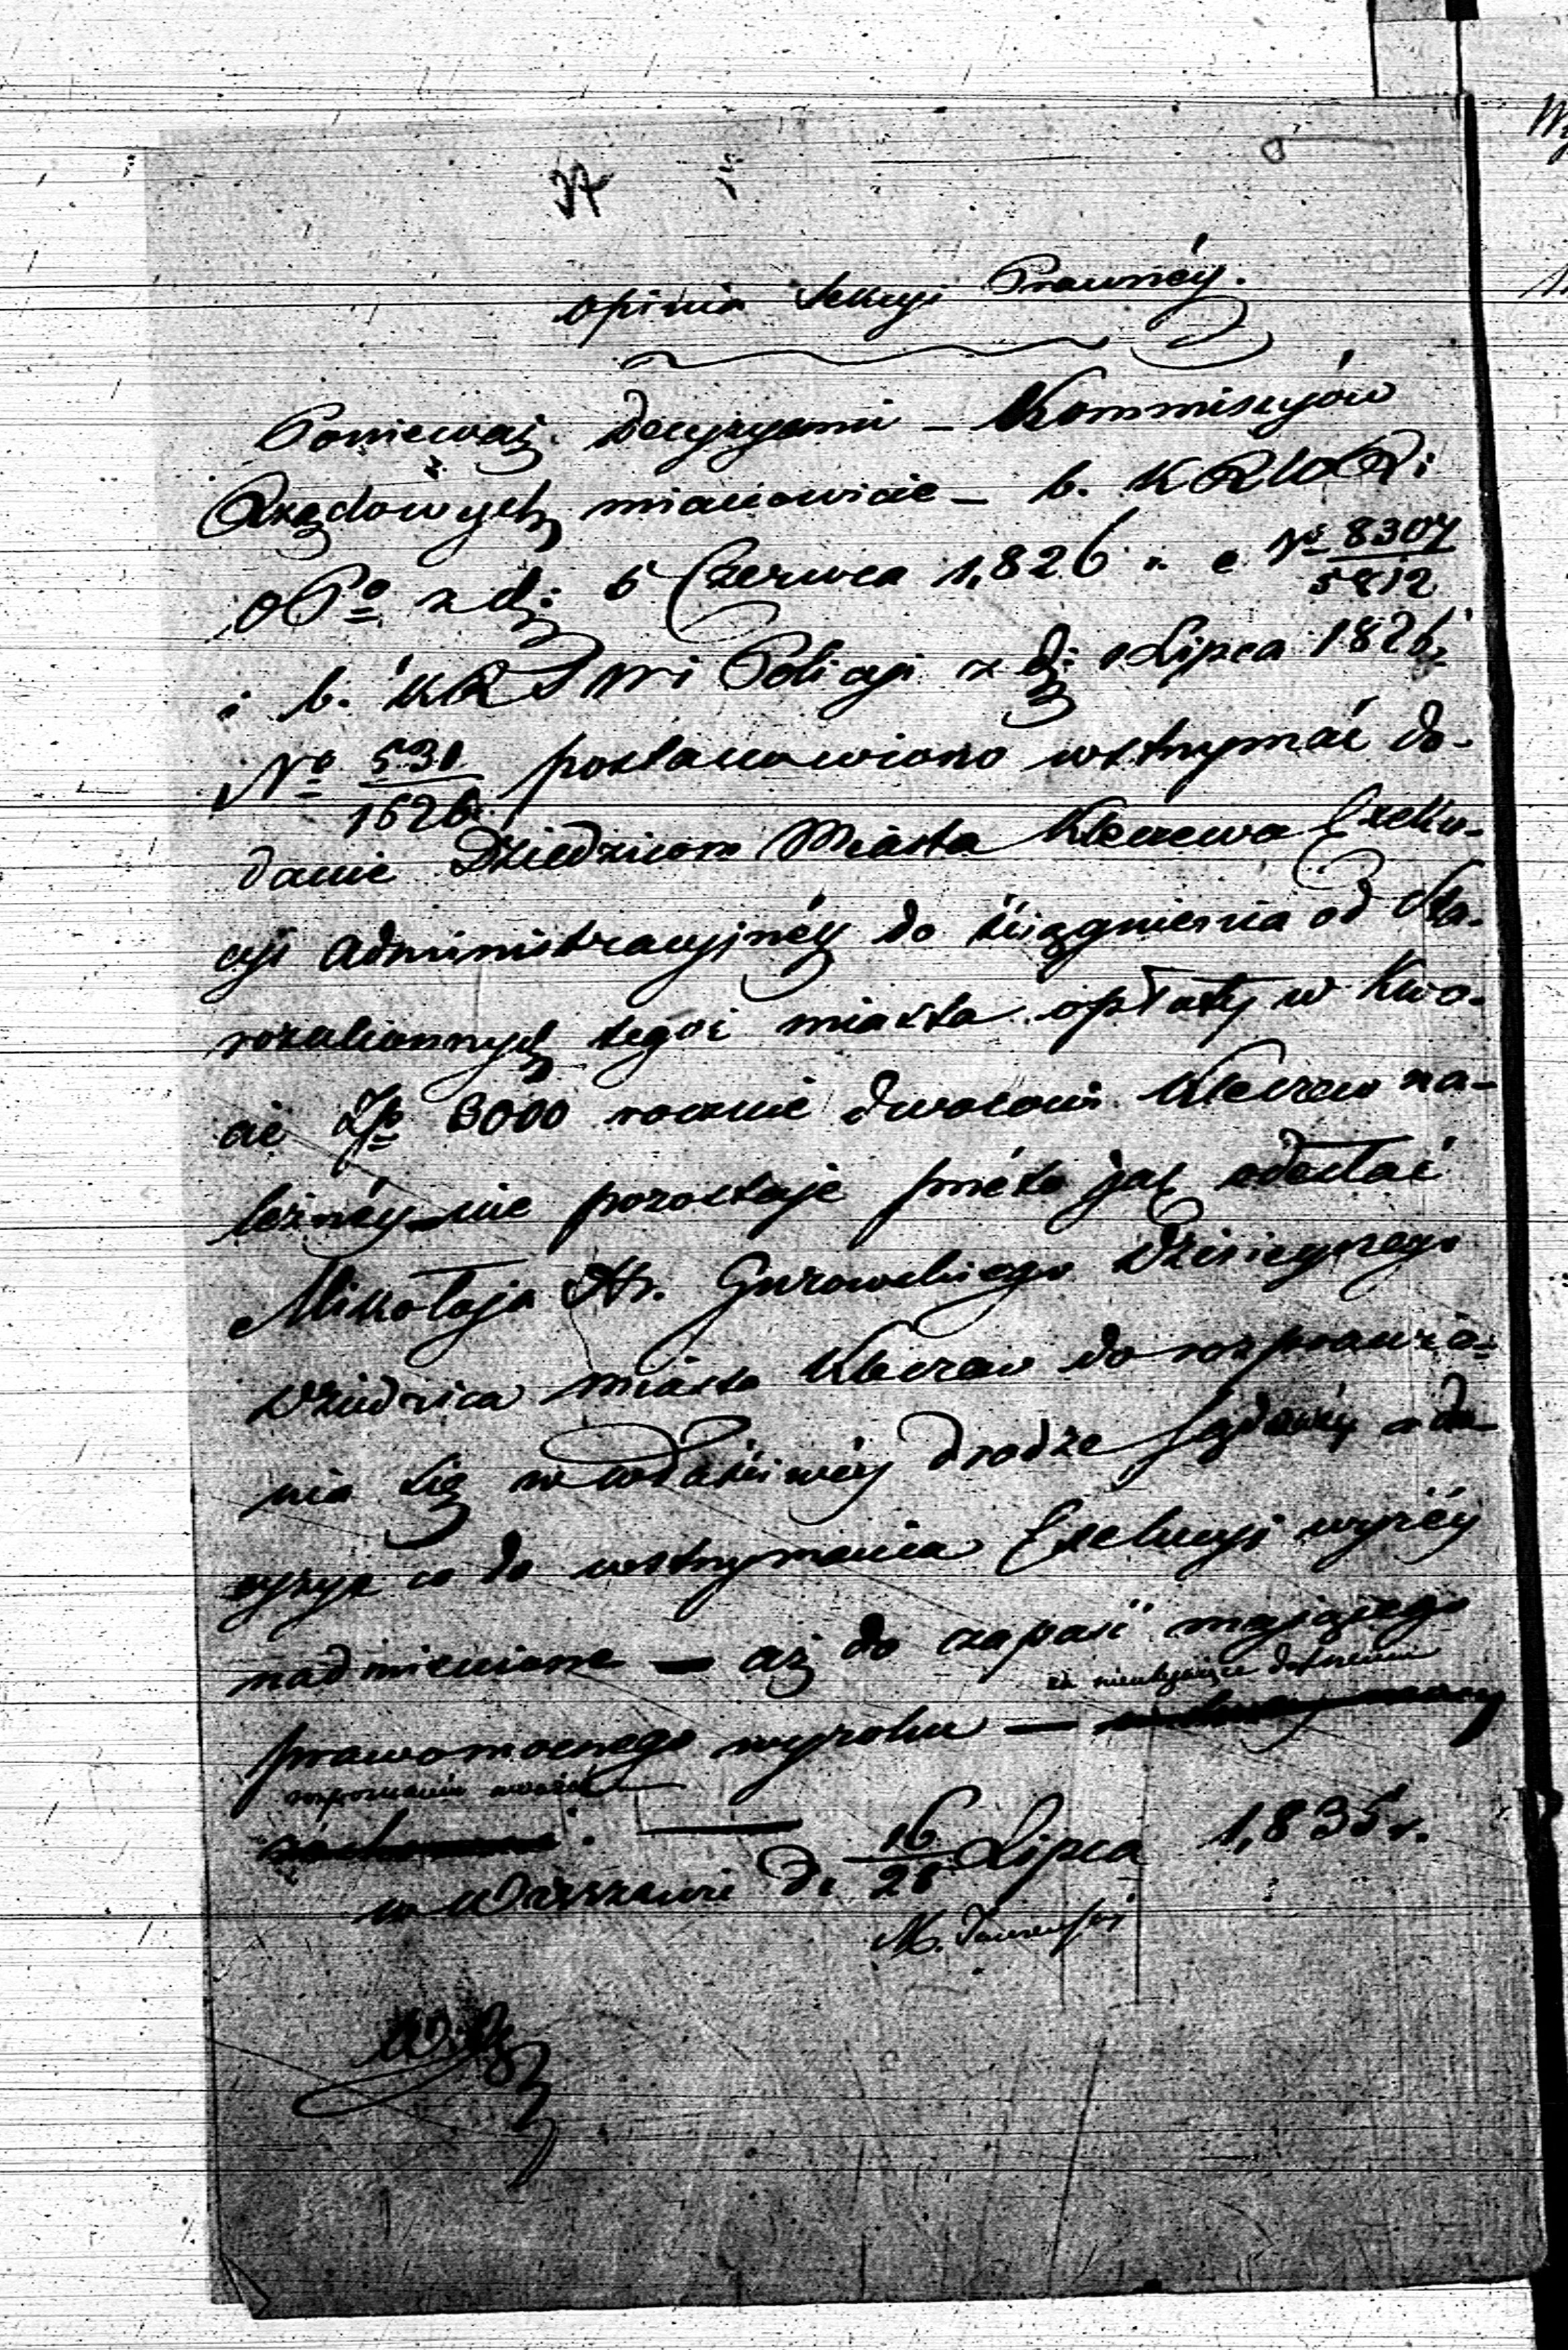 37
Opinia Sekcyi Prawnéy.
Ponieważ decyzyami – Kommissyów
Rządowych mianowicie – b. KRWRi
OPº z d: 5 Czerwca 1,826 r. Nº 8307/5812
i b. KRSWi Policyi z d: Lipca 1826
Nº 530/1626 postanowiono wstrzymać do-
danie Dziedzicom Miasta Kleczewa Exeku-
cyi Administracyjnéy do ściągnienia od Sta-
rozakonnych tegoż miasta opłaty w kwo-
cie Zp 3000 rocznie dworowi Kleczew na-
leżnéy nie pozostaje przéto jak odesłać
Mikołaja Hr. Gurowskiego Dzisieyszego
Dziedzica miasta Kleczew do rozprawia-
nia się w właściwéy drodze Sądowéy a de-
cyzye co do wstrzymania Exekucyi wyżéy
nadmienione — aż do zapaść mającego
za nieulegające
prawomocnego wyroku —
w Warszawie d. 16/28 Lipca 1,835 r.